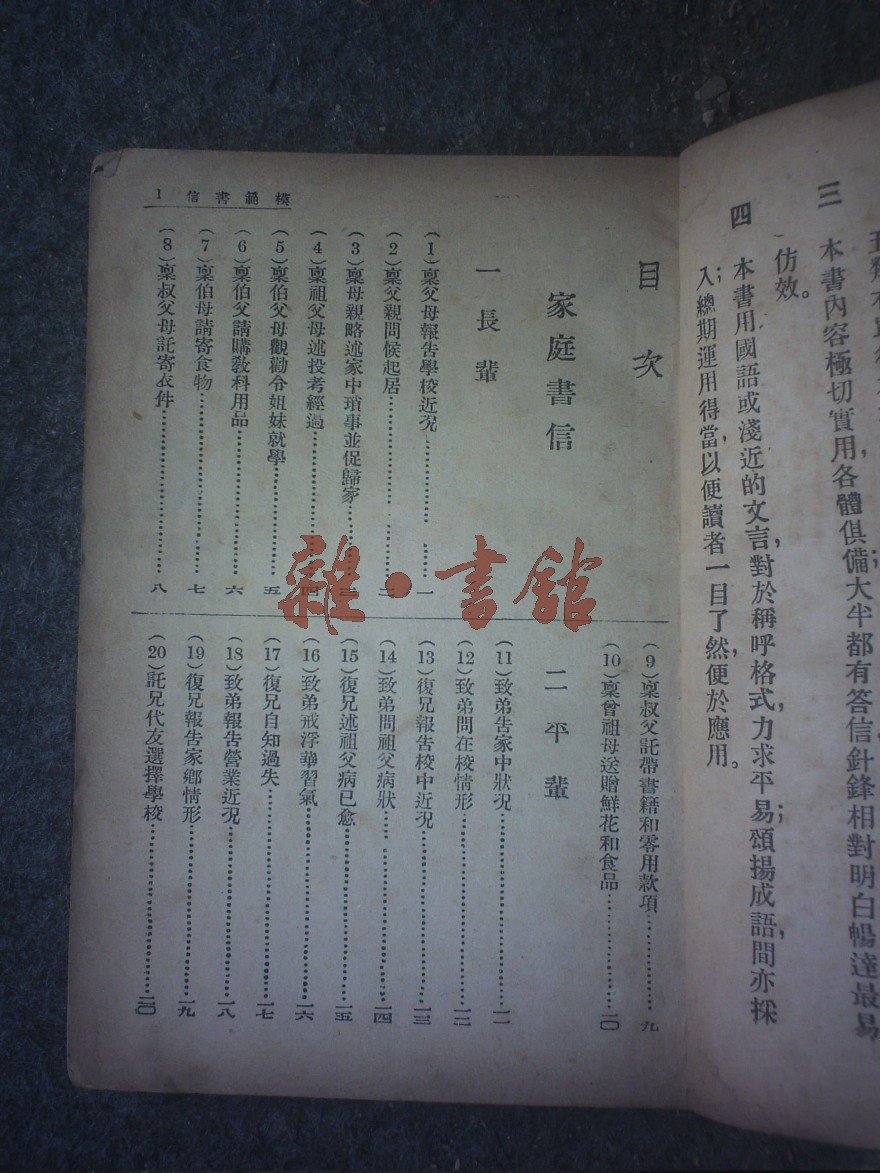 三　本書內容極切實用,各體俱備大半都有答信針鋒相對明白暢達最易
仿效。
四　本書用國語或淺近的文言,對於稱呼格式,力求平易;頌揚成語,間亦採
入;總期運用得當,以便讀者一目了然便於應用。
模範書信 1
目次
家庭書信
一 長輩
(1)稟父母報告學校近況…………一
(2)稟父親問候起居…………二
(3)稟母親略述家中瑣事並促歸家…………三
(4)稟祖父母述投考經過…………四
(5)稟伯父母觀勸令姐妹就學…………五
(6)稟伯父請購教科用品…………六
(7)稟伯母請寄食物…………七
(8)稟叔父母託寄衣件…………八
(9)稟叔父託帶書籍和零用款項…………九
(10)稟曾祖母送贈鮮花和食品…………一〇
二 平輩
(11)致弟告家中狀況…………一一
(12)致弟問在校情形…………一二
(13)復兄報告校中近況…………一三
(14)致弟問祖父病狀…………一四
(15)復兄述祖父病已愈…………一五
(16)致弟戒浮華習氣…………一六
(17)復兄自知過失…………一七
(18)致弟報告營業近況…………一八
(19)復兄報告家鄉情形…………一九
(20)託兄代友選擇學校…………二〇
雜·書館